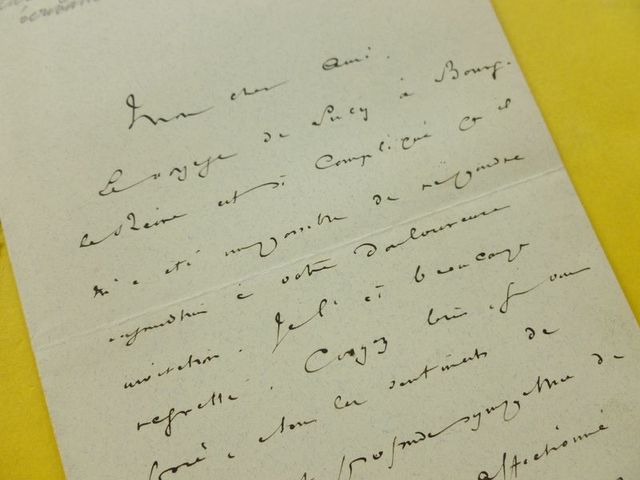 Mon cher Ami.
Le voyage de Sucy à Bourg-
la-Reine est si compliqué qu'il
m'a été impossible de répondre
aujourd'hui à votre douloureuse
invitation. Je l'ai beaucoup
regretté. Croyez bien je vous
les sentiments de
profonde sympathie de
affectionné